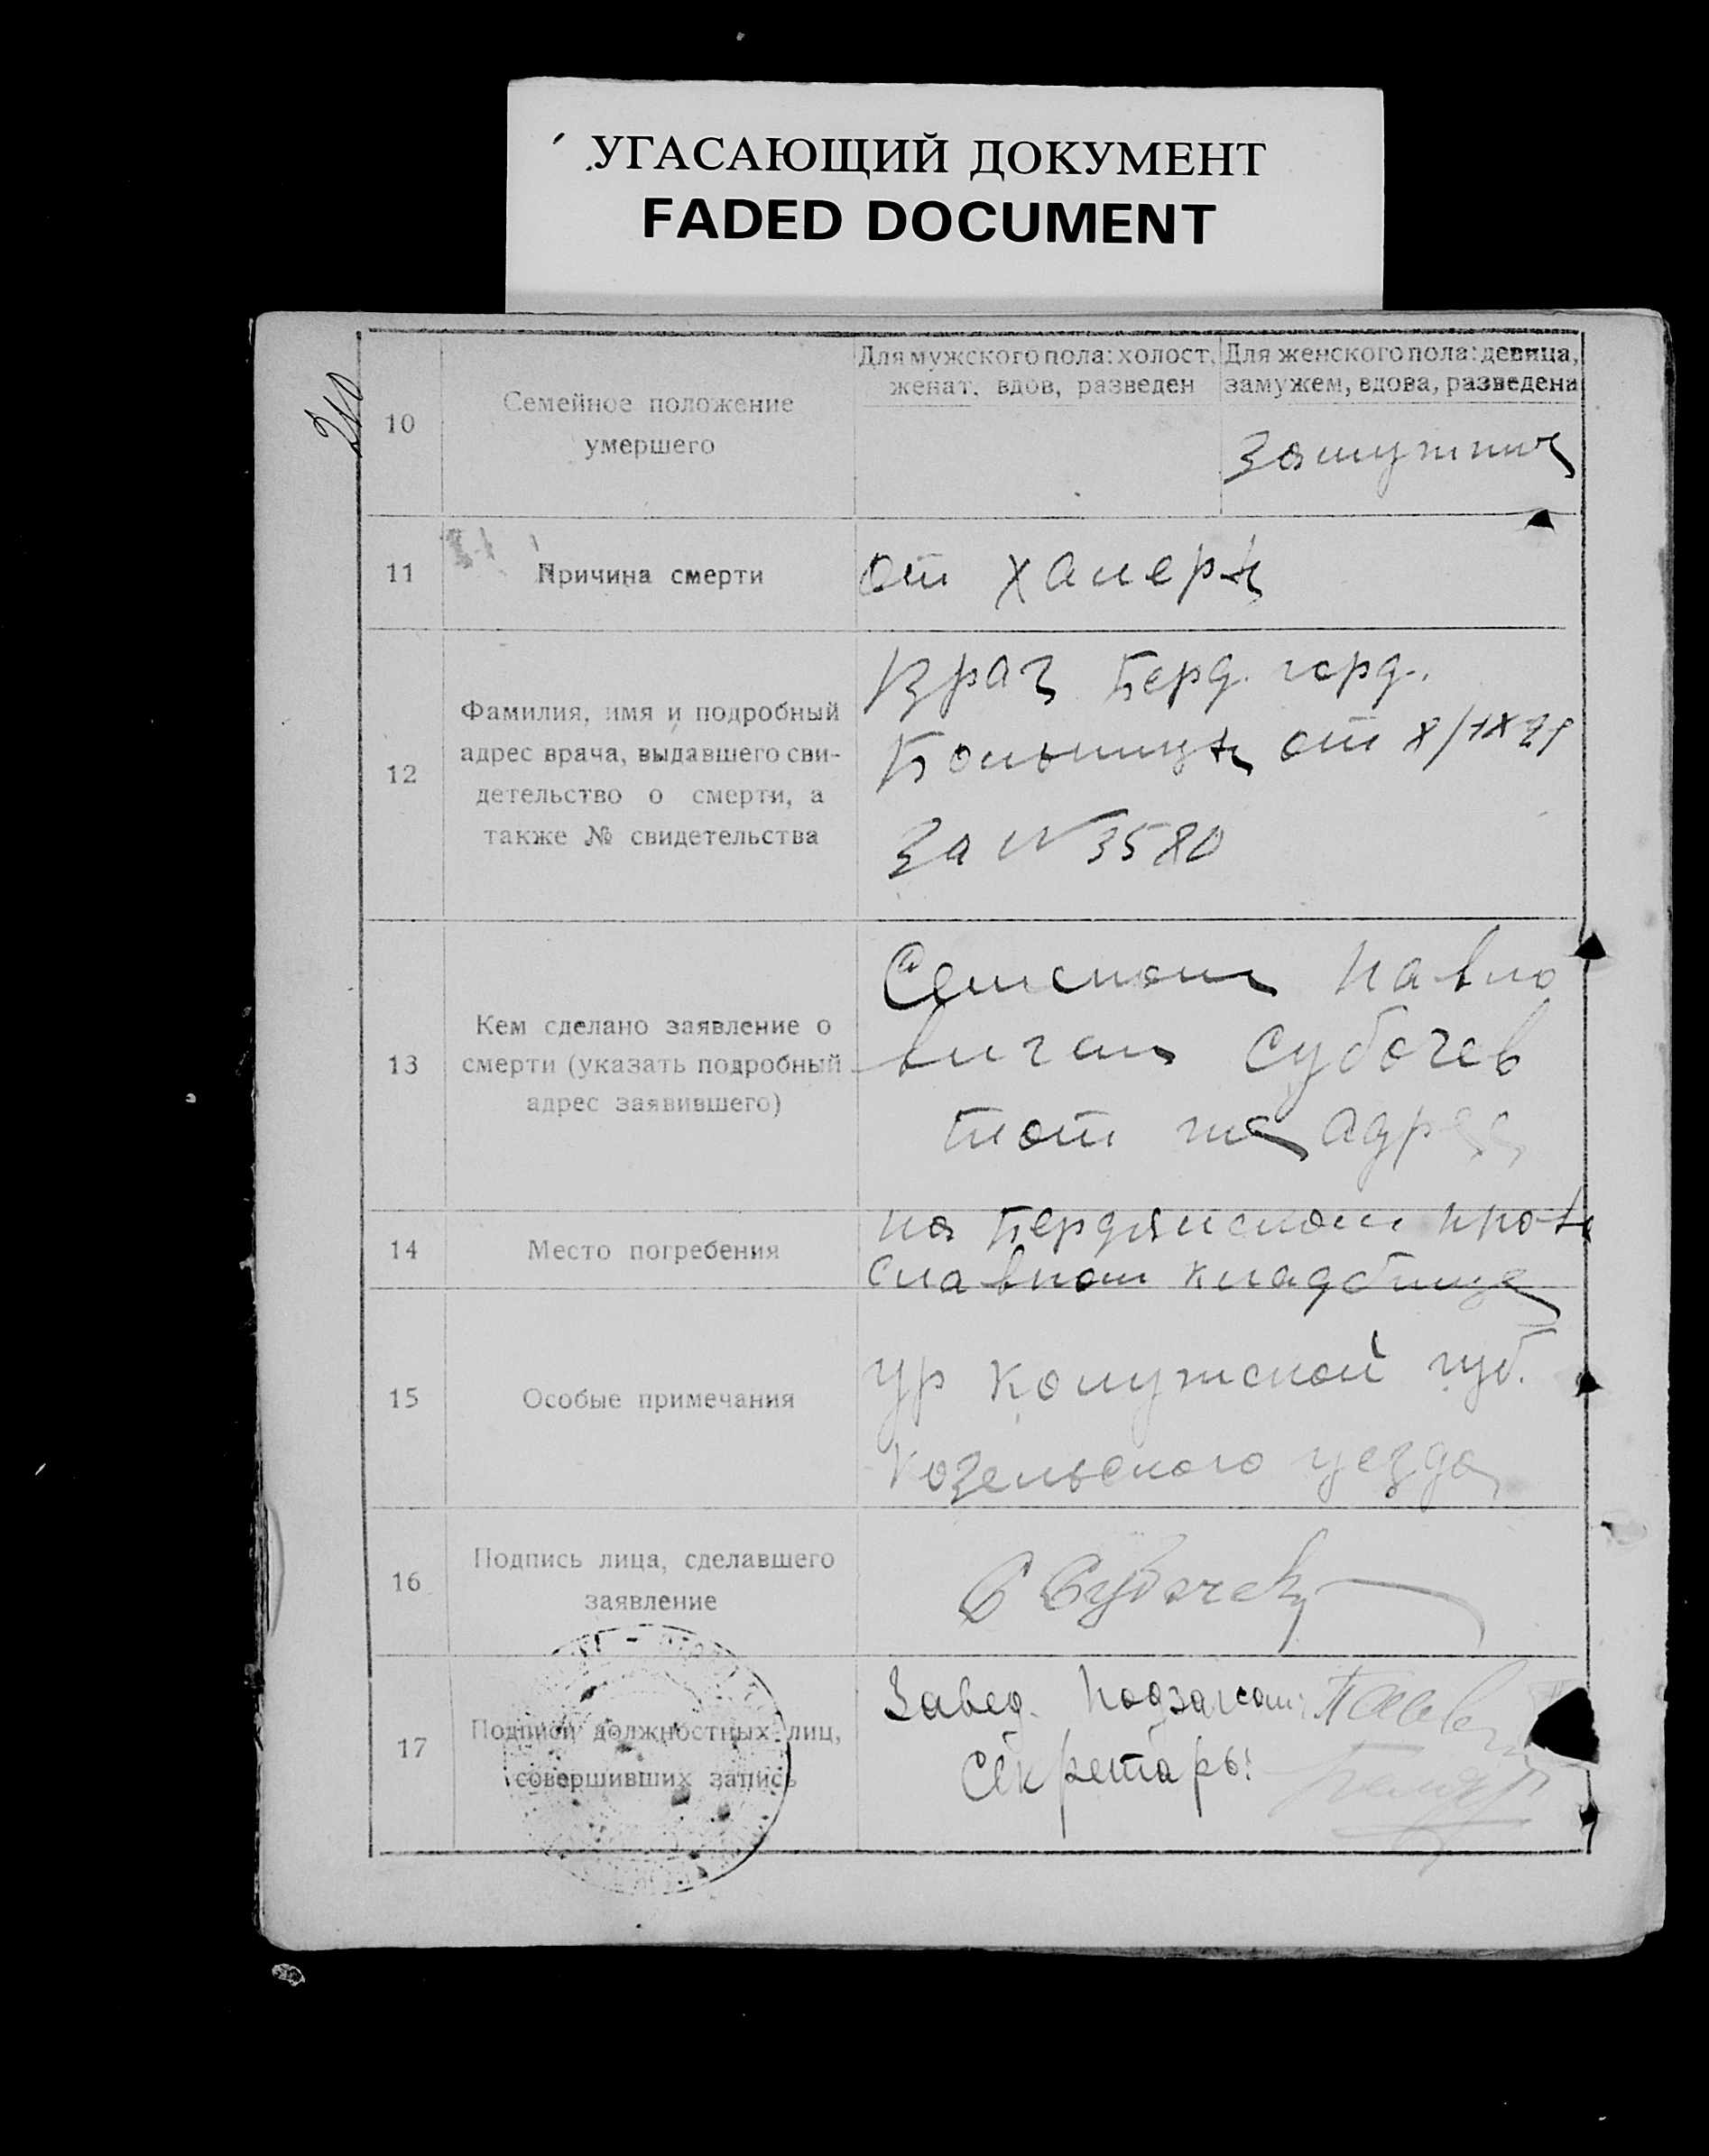 УГАСАЮЩИЙ ДОКУМЕНТ
FADED DOCUMENT
240
10
Семейное положение
умершего
Для мужского пола: холост,
женат, вдов, разведен
Для женского пола: девица,
замужем, вдова, разведена
замужния
11
Причина смерти
от халеры
12
Фамилия, имя и подробный
адрес врача, выдавшего сви-
детельство о смерти, а
также № свидетельства
Врач Берд. горд.
Больницы от 8/IX 21
за N 3580
13
Кем сделано заявление о
смерти (указать подробный
адрес заявившего)
Семеном Павло
вичем Субочев
тот же адрес
14
Место погребения
на Бердянском пра-
славном кладбище
15
Особые примечания
ур Калужской губ.
Козельского уезда
16
Подпись лица, сделавшего
заявление
С Субочев
17
Подписи должностных лиц,
совершивших запись
Завед. Подзагсом:
Секретарь: